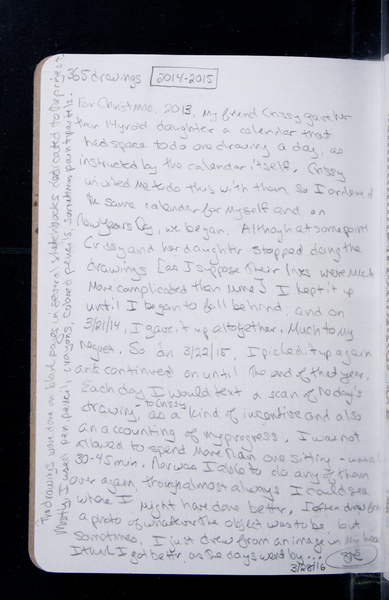 365 drawings 2014-2015
For Christmas, 2013, my friend Crissy gave her
then 14 yr old daughter a calendar that
had space to do one drawing a day, as
instructed by the calendar itself. Crissy
invited me to do this with them so I ordered
the same calendar for myself and on
New Years Day, we began. Although at some point
Crissy and her daughter stopped doing the
drawings [as I suppose their lives were much
more complicated than mine] I kept it up
until I began to fall behind, and on
3/21/14, I gave it up altogether. Much to my
regret. So on 3/22/15, I picked it up again
and continued on until the end of that year.
Each day I would text a scan of the day's
drawing, to Crissy as a kind of incentive and also
an accounting of my progress. I was not
allowed to spend more than one sitting - usually
30-45 min. Nor was I able to do any of them
over again, though almost always I could see
where I might have done better. I often drew from
a photo of whatever the object was to be, but
sometimes, I just drew from an image in my head
I think I got better, as the days went by...
3/28/16
The drawings were done on blank pages in several sketchbooks dedicated to the project.
Mostly, I used pen, pencil, crayons, colored pencils, sometimes paint, pastels.